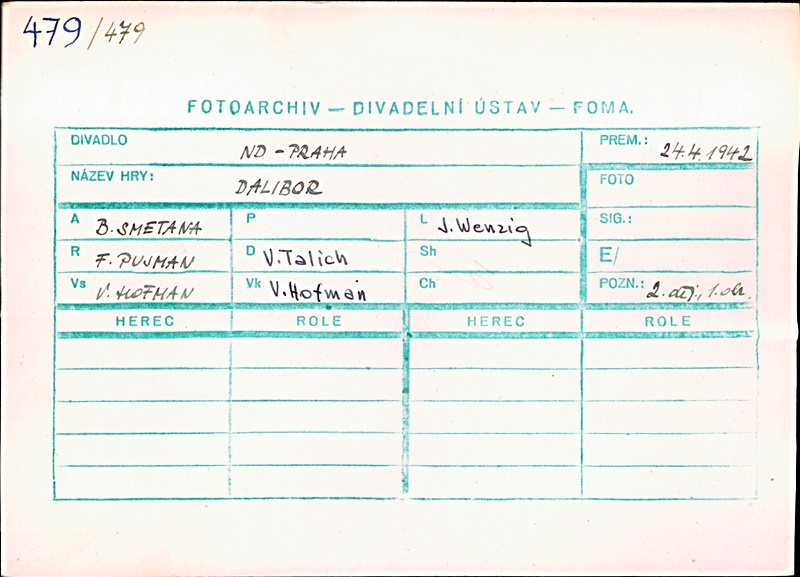 479/479
FOTOARCHIV — DIVADELNÍ ÚSTAV — FOMA.
DIVADLO ND - PRAHA PREM.: 24.4.1942
NÁZEV HRY: DALIBOR FOTO
A B.SMETANA P L J.Wenzig SIG.:
R F. PUJMAN D V.Talich Sh E/
Vs V. HOFMAN Vk V.Hofman Ch POZN.: 2. děj., 1. obr.
HEREC ROLE HEREC ROLE